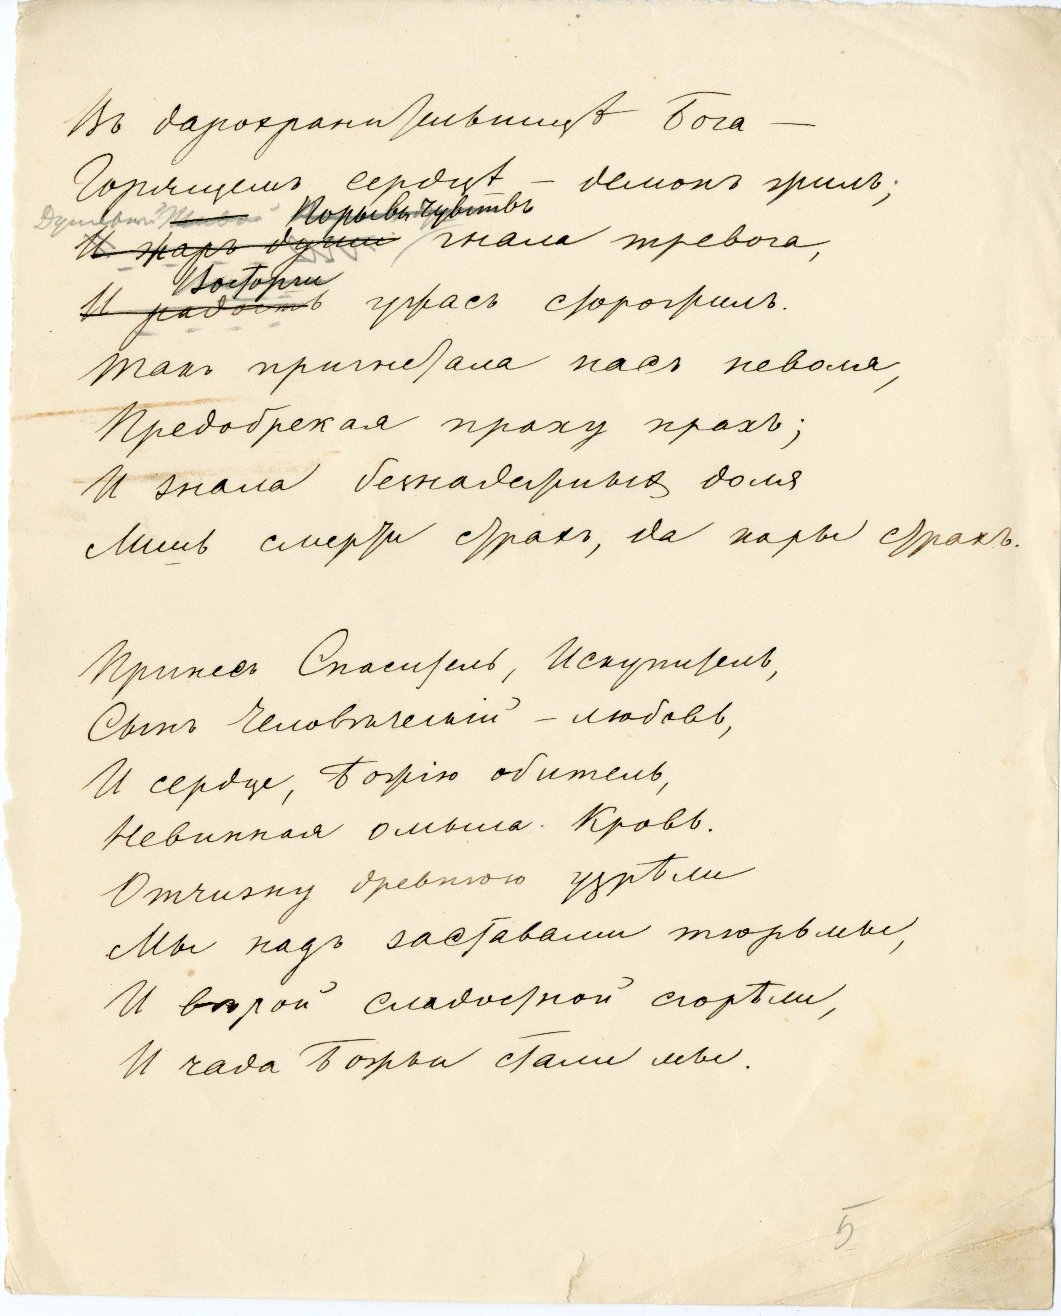 Въ дарохранительницѣ Бога —
Горящемъ сердцѣ — демонъ жилъ;
Душевный Порывы чувствъ
И жаръ души гнала тревога,
Восторги
И радость ужасъ сторожилъ.
Такъ пригнетала насъ неволя,
Предобрекая праху прахъ;
И знала безнадежныхъ доля
Лишь смерти страхъ, да кары страхъ.
Принесъ Спаситель, Искупитель,
Сынъ Человѣческій — любовь,
И сердце, Божію обитель,
Невинная омыла Кровь.
Отчизну древнюю узрѣли
Мы надъ заставами тюрьмы,
И вѣрой сладостной сгорѣли,
И чада Божьи стали мы.
5